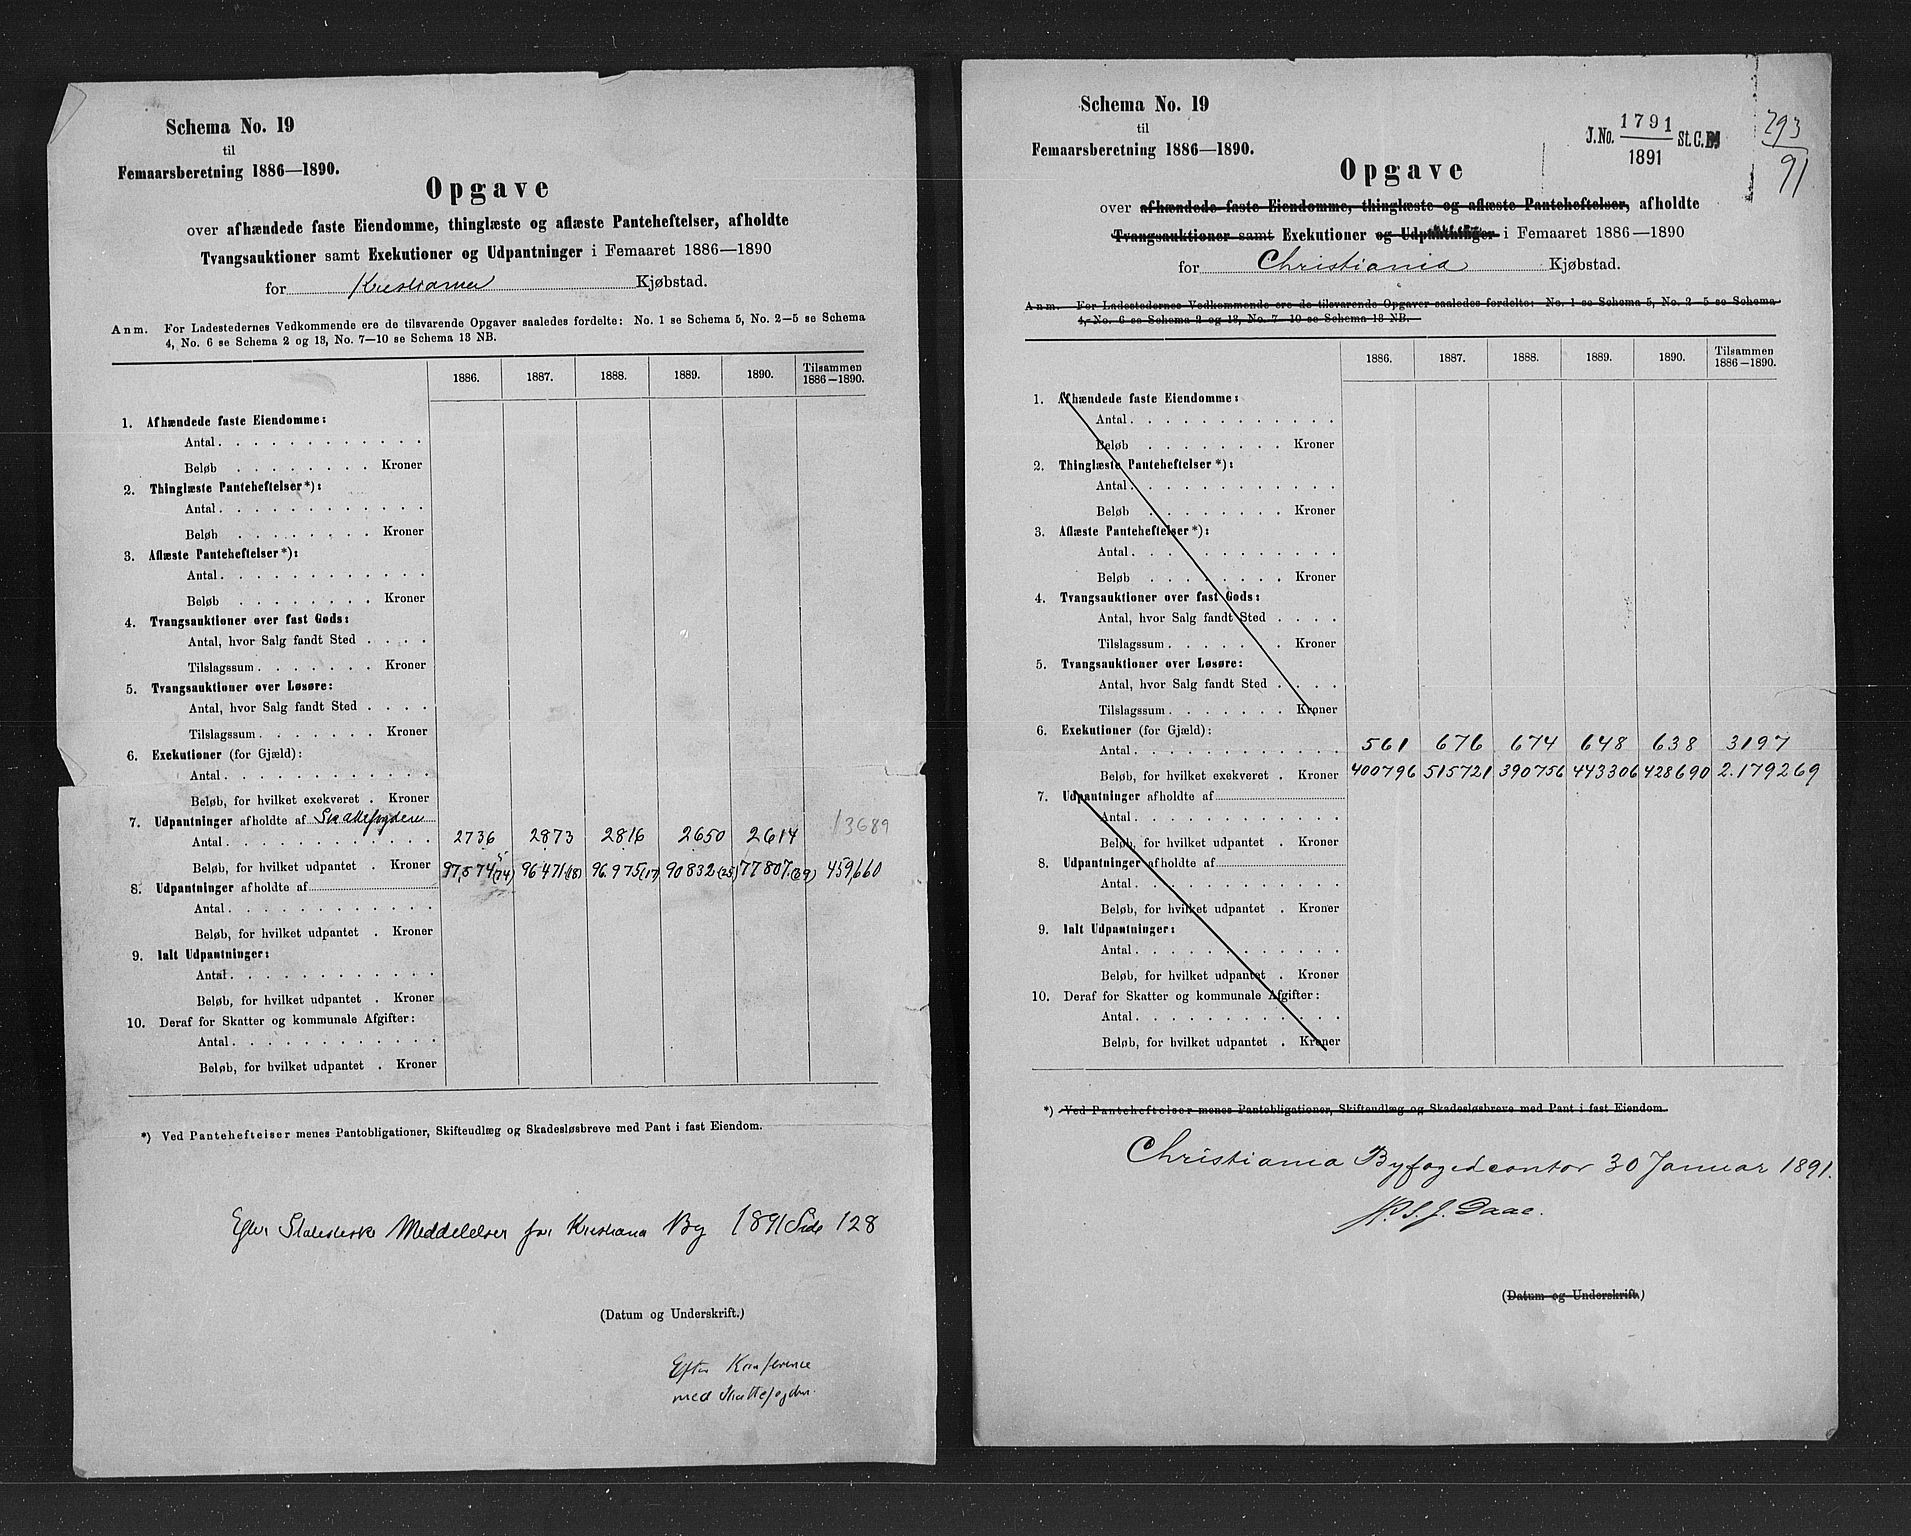 Schema No. 19
til
Femaarsberetning 1886—1890.
Opgave
over afhændede faste Eiendomme, thinglæste og aflæste Panteheftelser, afholdte
Tvangsauktioner samt Exekutioner og Udpantninger i Femaaret 1886—1890
for Kristiania Kjøbstad.
Anm. For Ladestedernes Vedkommende ere de tilsvarende Opgaver saaledes fordelte: No. 1 se Schema 5, No. 2—5 se Schema
4, No. 6 se Schema 2 og 13, No. 7—10 se Schema 13 NB.
1886. 1887. 1888. 1889. 1890. Tilsammen
1886—1890.
1. Afhændede faste Eiendomme:
Antal
Beløb Kroner
2. Thinglæste Panteheftelser*):
Antal
Beløb Kroner
3. Aflæste Panteheftelser*):
Antal
Beløb Kroner
4. Tvangsauktioner over fast Gods:
Antal, hvor Salg fandt Sted
Tilslagssum Kroner
5. Tvangsauktioner over Løsøre:
Antal, hvor Salg fandt Sted
Tilslagssum Kroner
6. Exekutioner (for Gjæld):
Antal
Beløb, for hvilket exekveret Kroner
7. Udpantninger afholdte af Skattefogden
Antal 2736 2873 2816 2650 2614 13689
Beløb, for hvilket udpantet Kroner 97,574 (74) 96471 (18) 96.975 (17) 90832 (25) 77807. (39) 459,660
8. Udpantninger afholdte af
Antal
Beløb, for hvilket udpantet Kroner
9. Ialt Udpantninger:
Antal
Beløb, for hvilket udpantet Kroner
10. Deraf for Skatter og kommunale Afgifter:
Antal
Beløb, for hvilket udpantet Kroner
*) Ved Panteheftelser menes Pantobligationer, Skifteudlæg og Skadesløsbreve med Pant i fast Eiendom.
Efter Statistiske Meddelelser for Kristiania By 1891 Side 128
(Datum og Underskrift.)
Efter Konference
med Skattefogden.
Schema No. 19
til
Femaarsberetning 1886—1890.
J. No. 1791 St. C. B.
1891
293
91
Opgave
over afhændede faste Eiendomme, thinglæste og aflæste Panteheftelser, afholdte
Tvangsauktioner samt Exekutioner og Udpantninger i Femaaret 1886—1890
for Christiania Kjøbstad.
Anm. For Ladestedernes Vedkommende ere de tilsvarende Opgaver saaledes fordelte: No. 1 se Schema 5, No. 2—5 se Schema
4, No. 6 se Schema 2 og 13, No. 7—10 se Schema 13 NB.
1886. 1887. 1888. 1889. 1890. Tilsammen
1886—1890.
1. Afhændede faste Eiendomme:
Antal
Beløb Kroner
2. Thinglæste Panteheftelser*):
Antal
Beløb Kroner
3. Aflæste Panteheftelser*):
Antal
Beløb Kroner
4. Tvangsauktioner over fast Gods:
Antal, hvor Salg fandt Sted
Tilslagssum Kroner
5. Tvangsauktioner over Løsøre:
Antal, hvor Salg fandt Sted
Tilslagssum Kroner
6. Exekutioner (for Gjæld):
Antal 561 676 674 648 638 3197
Beløb, for hvilket exekveret Kroner 400796 515721 390756 443306 428690 2.179269
7. Udpantninger afholdte af
Antal
Beløb, for hvilket udpantet Kroner
8. Udpantninger afholdte af
Antal
Beløb, for hvilket udpantet Kroner
9. Ialt Udpantninger:
Antal
Beløb, for hvilket udpantet Kroner
10. Deraf for Skatter og kommunale Afgifter:
Antal
Beløb, for hvilket udpantet Kroner
*) Ved Panteheftelser menes Pantobligationer, Skifteudlæg og Skadesløsbreve med Pant i fast Eiendom.
Christiania Byfogedcontor 30 Januar 1891.
Daae.
(Datum og Underskrift.)